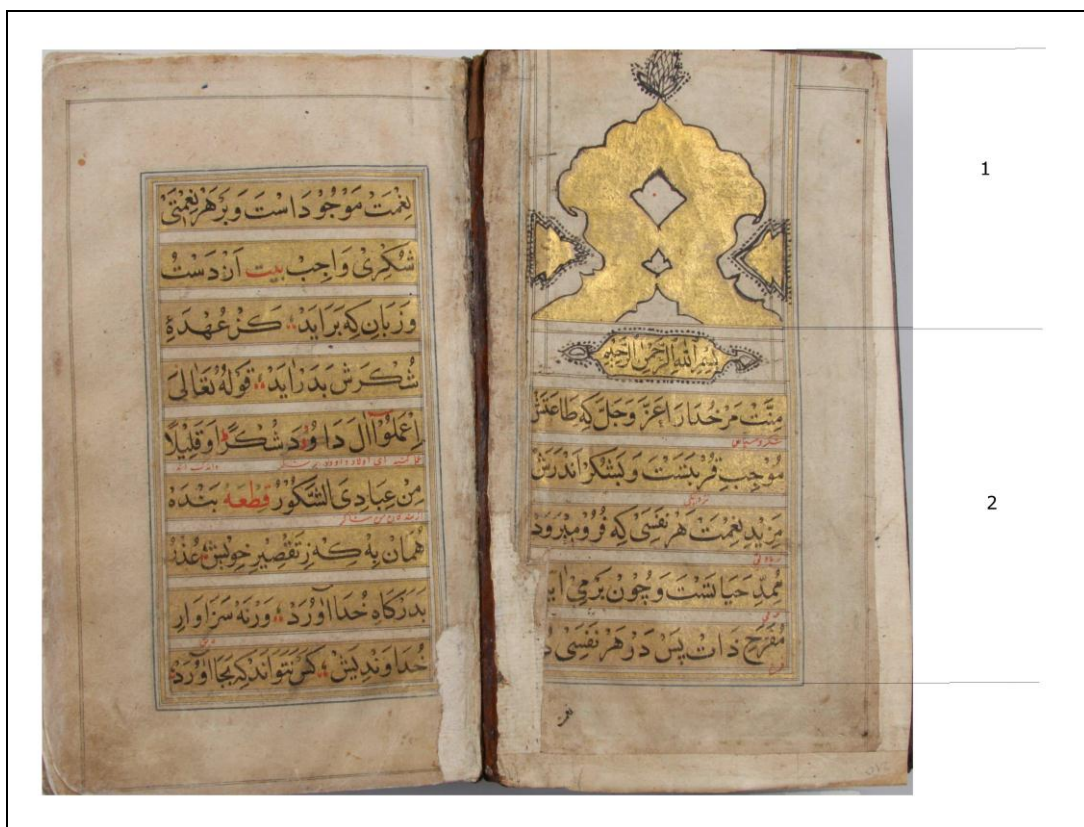 1
بِسْمِ اللهِ الرَّحْمٰنِ الرَّحِیْمِ
2
مِنَّتْ مَرْ خُدَارَا عَزَّ وَجَلَّ کِه طَاعَتَشْ
مُوْجِبِ قُرْبَتَسْتْ وَبَشُکْرْ اَنْدَرَشْ
مَزِیْدِ نِعْمَتْ هَرْ نَفَسِیْ کِه فُرُوْ مِیْرَوَدْ
مُمِدِّ حَیَاتَسْتْ وَچُوْنْ بَرْمِیْ
مُفَرِّحِ ذَاتْ پَسْ دَرْ هَرْ نَفَسِیْ
نِعْمَتْ مَوْجُوْدَاسَتْ وَبَرْ هَرْ نِعْمَتِیْ
شُکْرِیْ وَاجِبْ بیت اَزْ دَسْتُ
وَزَبَانِ کِه بَرَایَدْ کَزْ عُهْدَۀِ
شُکْرَشْ بَدَرْایَدْ قَوْلُهُ تَعَالیٰ
اِعْمَلُوْا آلَ دَاوُوْدَ شُکْرًا وَقَلِیْلًا
مِنْ عِبَادِیَ الشَّکُوْرُ قِطْعَه بَنْدَه
هَمَانْ بِهْ کِه زِتَقْصِیْرِ خوِیْشْ عُذْرْ
بَدَرْکَاهِ خُدَا آوُرَدْ وَرْنَه سَزَاوَارِ
خُدَاوَنْدِیَشْ کَسْ نَتَوَانَدْ کِه بَجَا آوُرَدْ